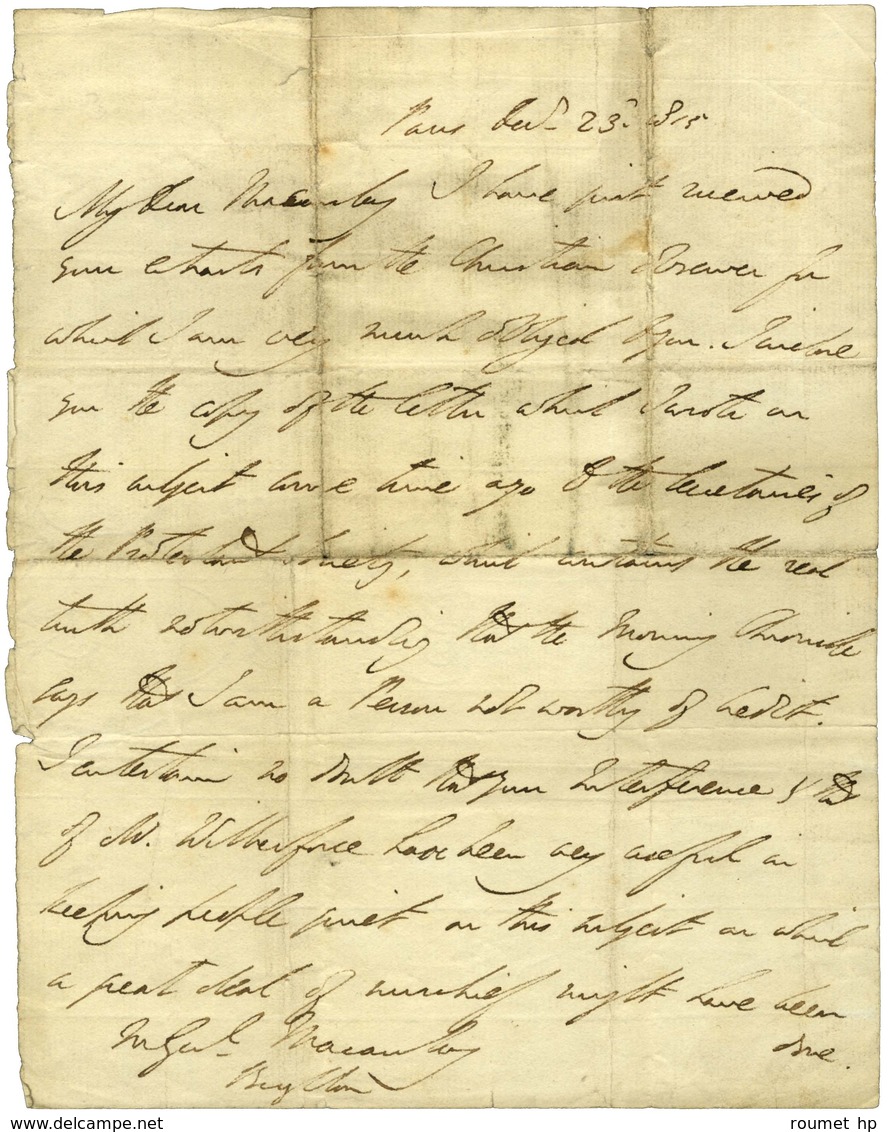 Paris Decr. 23d. 1815
My dear Macaulay I have just received
your extracts from the Christian Observer for
which I am very much obliged to you. I inclose
you the copy of the letter which I wrote on
this subject some time ago to the Secretaries of
the Protestant Society, which contains the real
truth notwithstanding that the Morning Chronicle
says that I am a Person not worthy of credit.
I entertain no doubt that your interference & that
of Mr. Wilberforce have been very useful in
keeping people quiet on this subject on which
a great deal of mischief might have been
done.
M Genl. Macaulay
Brighton
roumet hp